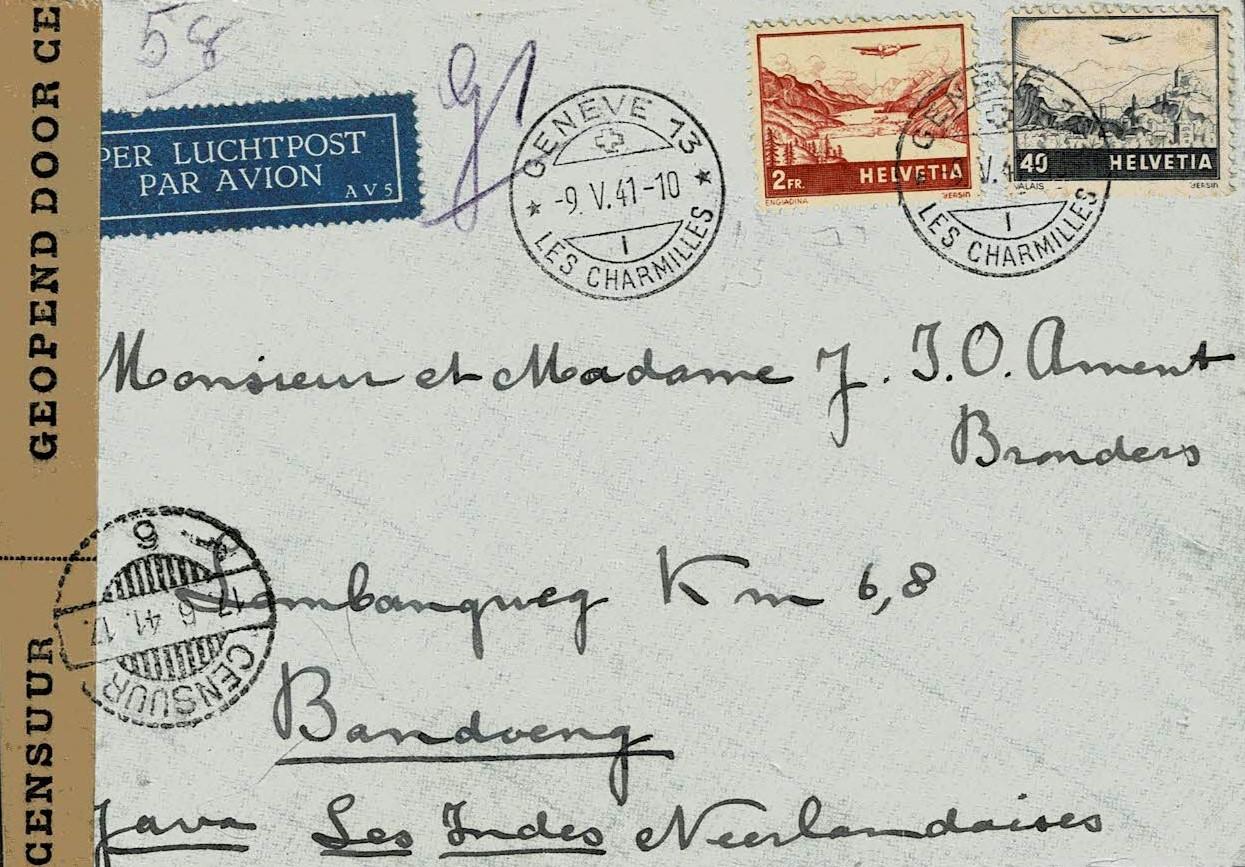 58
GEOPEND DOOR CE
CENSUUR
PER LUCHTPOST
PAR AVION
AV5
GENÈVE 13
-9.V.41-10
1
LES CHARMILLES
2FR. HELVETIA
ENGIADINA BERSIN
40 HELVETIA
VALAIS BERSIN
GENÈVE 1
V.4
1
LES CHARMILLES
Monsieur et Madame J. J.O. Ament
Bronders
Lembangweg Km 6,8
Bandoeng
Java Les Indes Neerlandaises
6
6.41.17
CENSUUR